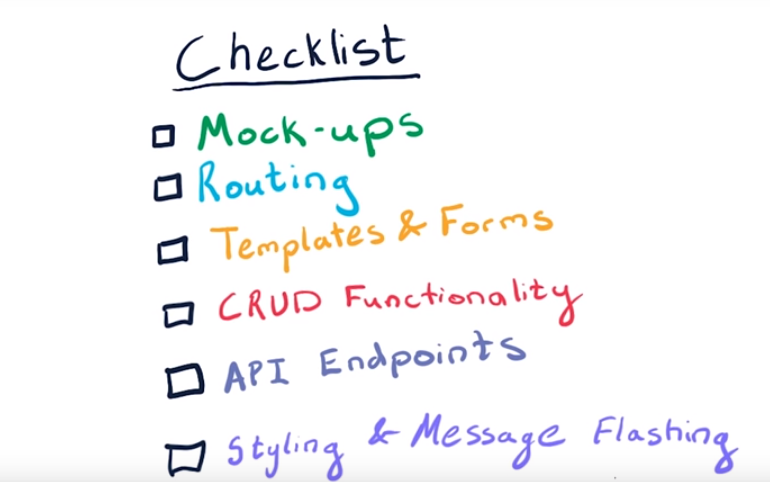 Checklist
Mock-ups
Routing
Templates & Forms
CRUD Functionality
API Endpoints
Styling & Message Flashing